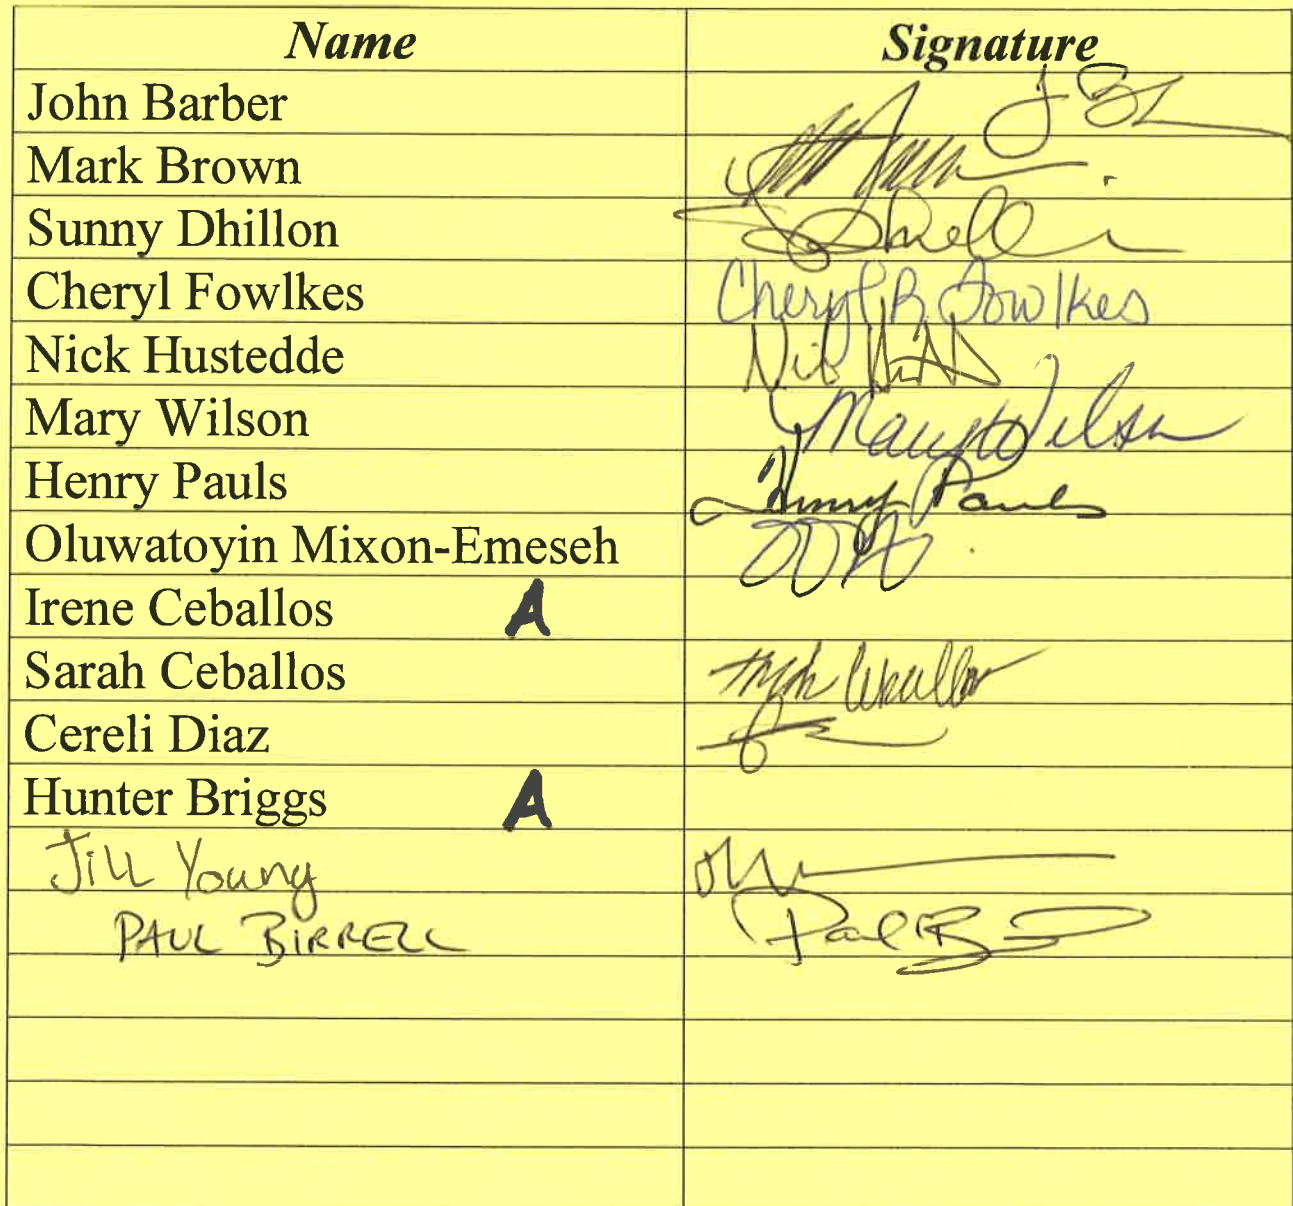 Name Signature
John Barber
Mark Brown
Sunny Dhillon
Cheryl Fowlkes Cheryl R Fowlkes
Nick Hustedde
Mary Wilson Mary Wilson
Henry Pauls Henry Pauls
Oluwatoyin Mixon-Emeseh
Irene Ceballos A
Sarah Ceballos
Cereli Diaz
Hunter Briggs A
Jill Young
PAUL BIRRELL